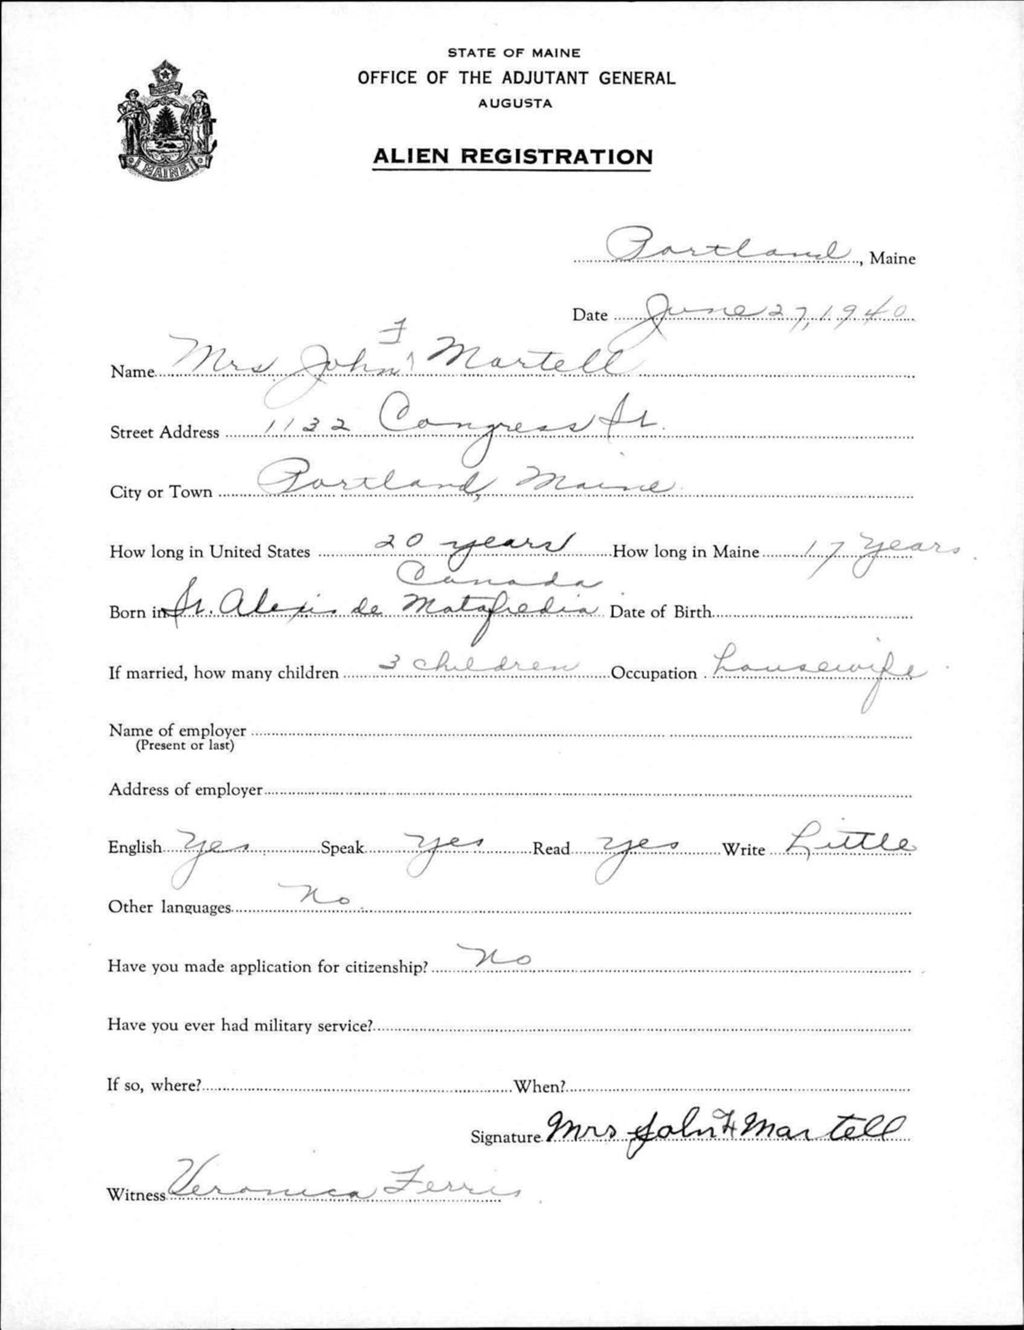 STATE OF MAINE
OFFICE OF THE ADJUTANT GENERAL
AUGUSTA
ALIEN REGISTRATION
MAINE
Portland, Maine
Date June 27, 1940
Name Mrs John F Martell
Street Address 1132 Congress St.
City or Town Portland, Maine
How long in United States 20 years How long in Maine 17 years.
Canada
Born in St. Alexis de Matafredia Date of Birth
If married, how many children 3 children Occupation housewife
Name of employer
(Present or last)
Address of employer
English Yes Speak yes Read yes Write Little
Other languages No
Have you made application for citizenship? No
Have you ever had military service?
If so, where? When?
Signature Mrs John F Martell
Witness Veronica Ferris